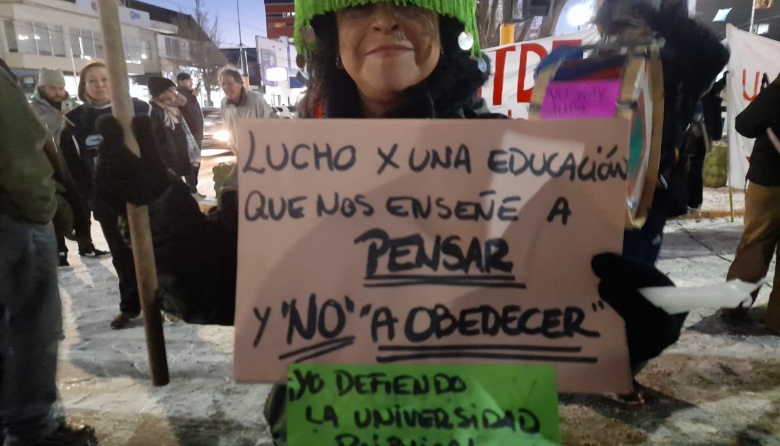 LUCHO X UNA EDUCACIÓN
QUE NOS ENSEÑE A
PENSAR
Y "NO" "A OBEDECER"
¡YO DEFIENDO
LA UNIVERSIDAD